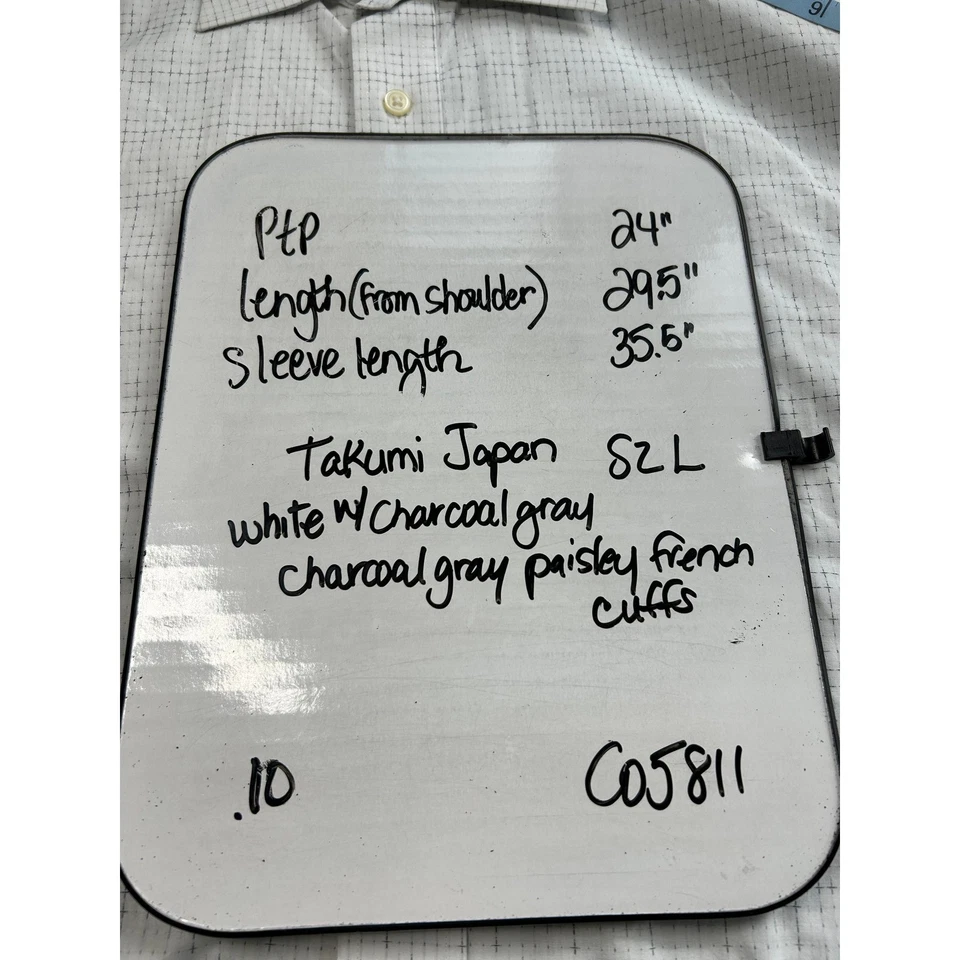 PtP 24"
length (from shoulder) 29.5"
sleeve length 35.5"
Takumi Japan SZ L
white w/ charcoal gray
charcoal gray paisley french
cuffs
.10 C05811